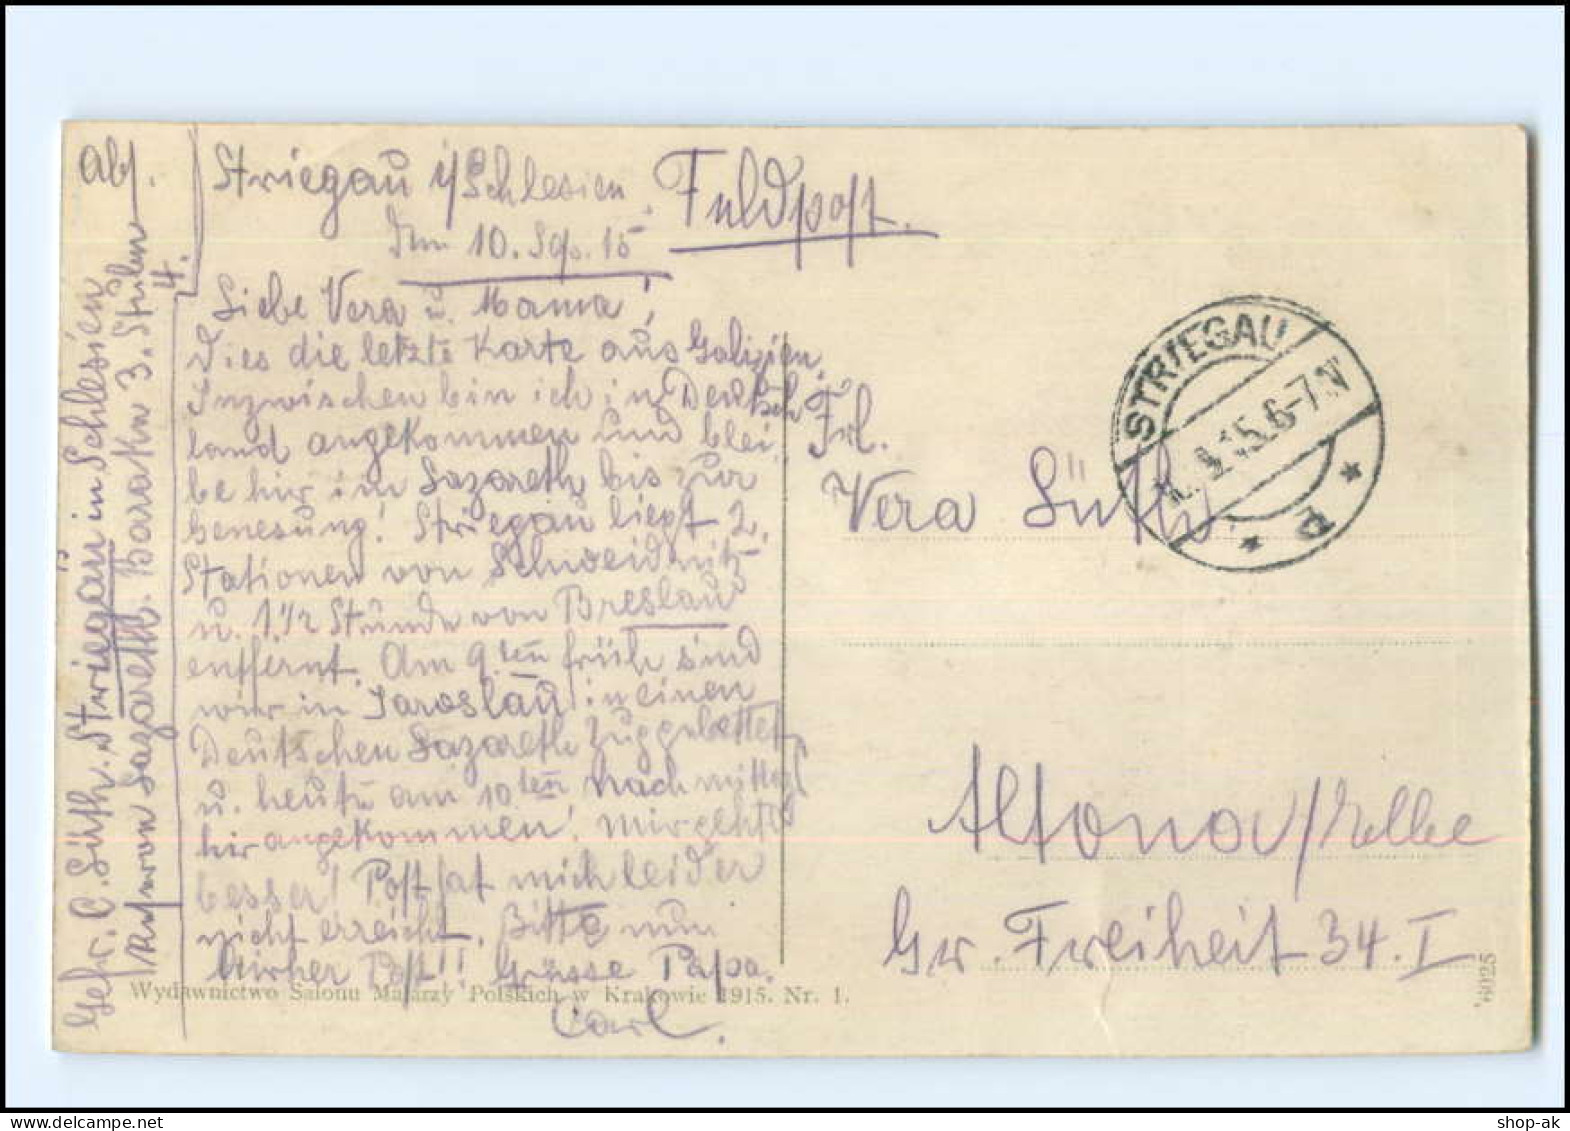 Abs.
Gefr. C. Süth. Striegau in Schlesien
Reserve Lazareth. Baracke 3. Stuben
4.
Striegau i/Schlesien.
den 10. Sep. 15
Feldpost.
Liebe Vera u. Mama!
Dies die letzte Karte aus Galizien.
Inzwischen bin ich in Deutsch
land angekommen und blei,
be hir im Lazareth bis zur
Genesung! Striegau liegt 2.
Stationen von Schweidnitz
u. 1.1/2 Stunde von Breslau
entfernt. Am 9.ten früh sind
wir in Jaroslau in einen
Deutschen Lazareth Zug gebettet
u. heute am 10ten nachmittag
hir angekommen! mir geht's
besser! Post hat mich leider
nicht erreicht. Bitte nun
hirher Post!! Grüsse Papa.
Carl.
Frl.
Vera Süth
Altona/Elbe
Gr. Freiheit 34. I
STRIEGAU
9.15.6-7.N
* P *
Wydawnictwo Salonu Malarzy Polskich w Krakowie 1915. Nr. 1.
6025
shop-ak